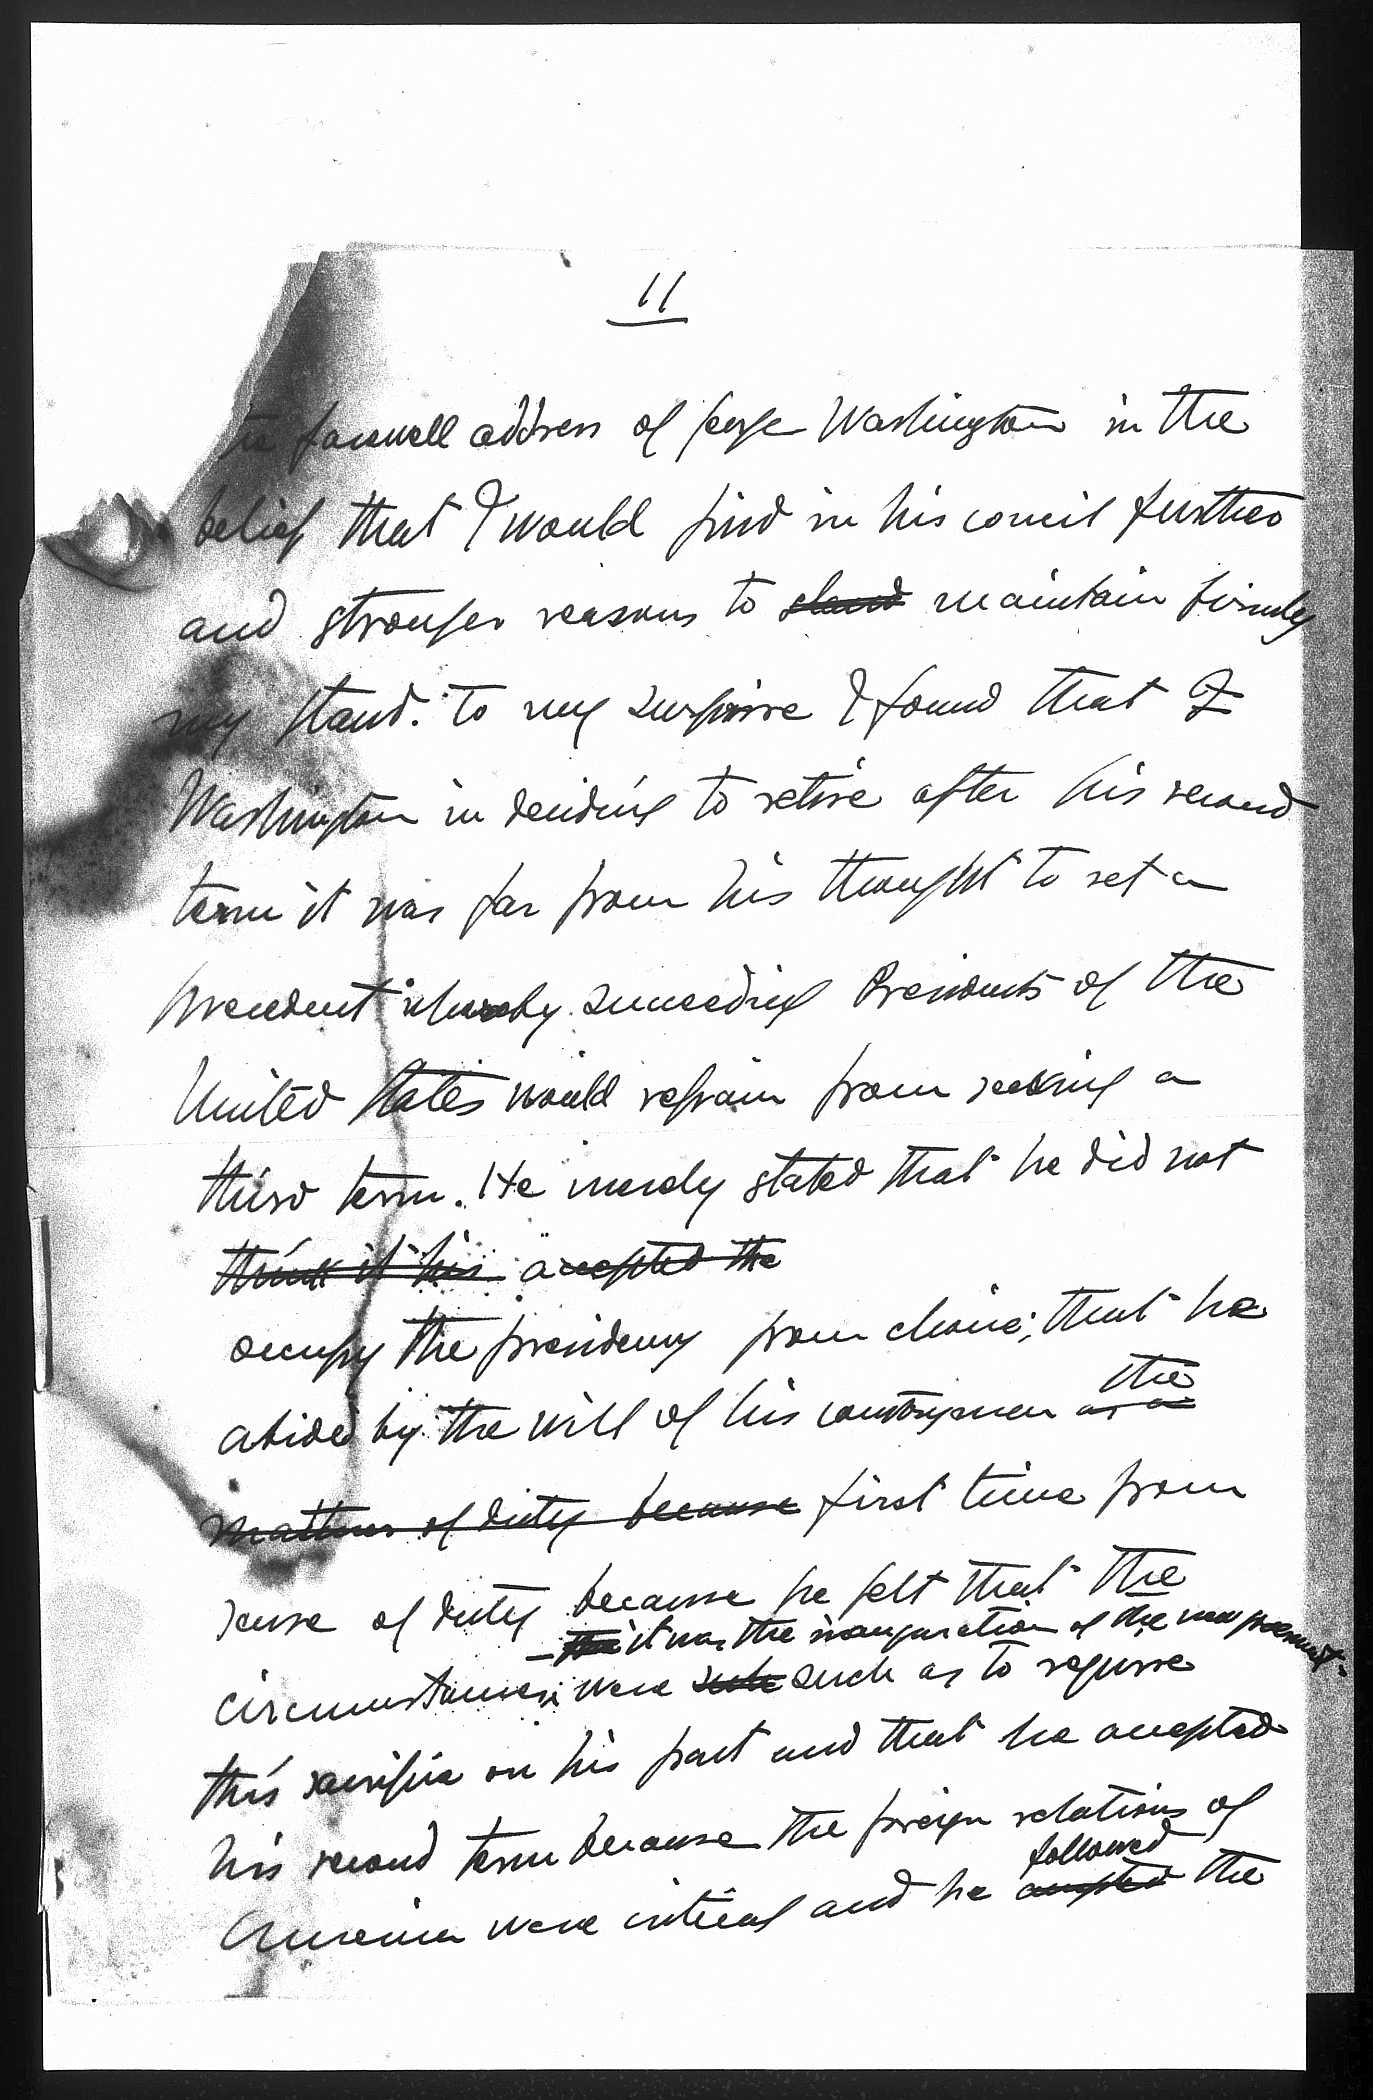 11
the farewell address of George Washington in the
belief that I would find in his council further
and stronger reasons to stand maintain firmly
my stand. To my surprise I found that I
Washington in deciding to retire after his second
term it was far from his thought to set a
precedent whereby succeeding Presidents of the
United States would refrain from seeking a
third term. He merely stated that he did not
think it his accepted the
occupy the presidency from choice, that he
abided by the will of his countrymen as a the
matter of duty because first time from
sense of duty because he felt that the
– the it was the inauguration of the new
circumstances were such as to require
this sacrifice on his part and that he accepted
his second term because the foreign relations of
followed
America were critical and he accepted the